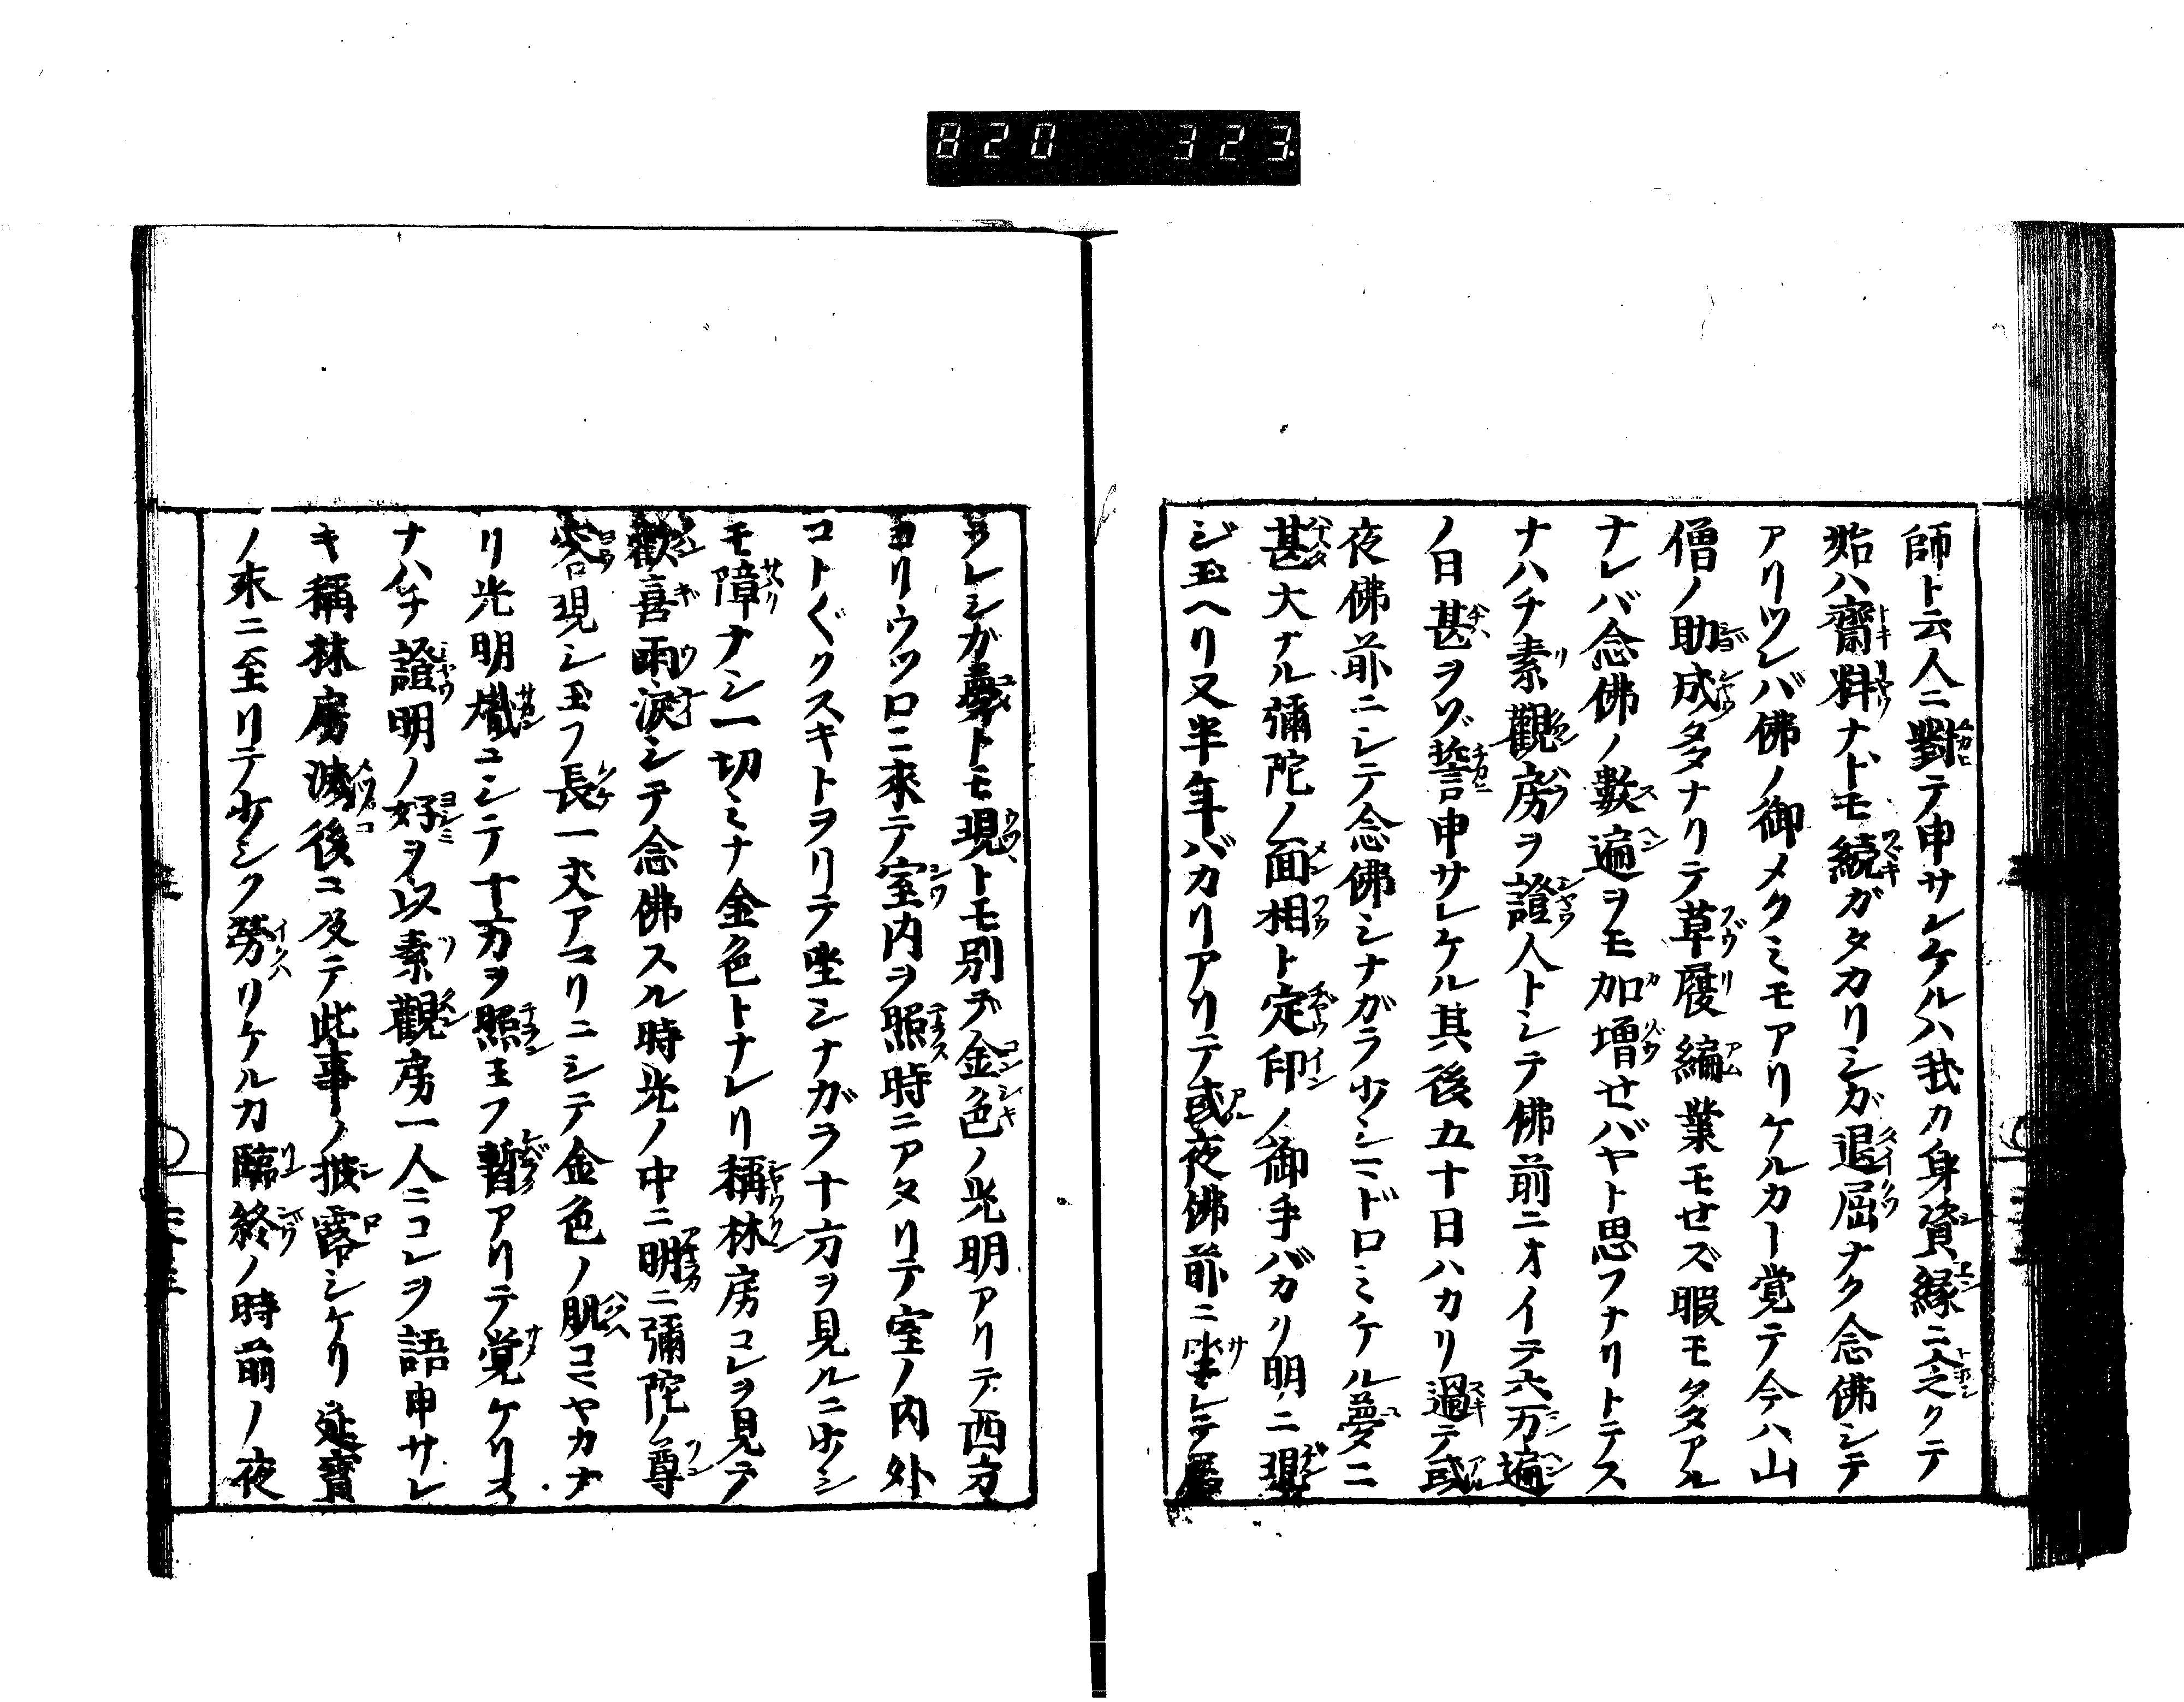 820 323
師ト云人ニ對テ申サレケルハ我カ身資縁ニ乏クテ
始ハ齋料ナドモ続ガタカリシガ退屈ナク念佛シテ
アリツレバ佛ノ御メクミモアリケルカー覚テ今ハ山
僧ノ助成タタナリテ草履編業モセズ暇モタタアル
ナレバ念佛ノ數遍ヲモ加増セバヤト思フナリトテス
ナハチ素觀房ヲ證人トシテ佛前ニオイテ六万遍
ノ日甚ヲゾ誓申サレケル其後五十日ハカリ過テ或
夜佛前ニシテ念佛シナガラ少シマドロミケル夢ニ
甚大ナル彌陀ノ面相ト定印ノ御手バカリ明ニ現
ジ玉ヘリ又半年バカリアリテ或夜佛前ニ坐シテ居
ラレシガ夢トモ現トモ別デ金色ノ光明アリテ西方
ヨリウツロニ來テ室内ヲ照時ニアタリテ室ノ内外
コト〲クスキトヲリテ坐シナガラ十方ヲ見ルニ少シ
モ障ナシ一切ミナ金色トナレリ稱林房コレヲ見テ
歡喜雨涙シテ念佛スル時光ノ中ニ明ニ彌陀ノ尊
容現シ玉フ長一丈アマリニシテ金色ノ肌コマヤカナ
リ光明熾ニシテ十方ヲ照玉フ暫アリテ覚ケリス
ナハチ證明ノ好ヲ以素觀房一人ニコレヲ語申サレ
キ稱林房滅後ニ及テ此事ノ披露シケリ延寶
ノ末ニ至リテ少シク勞リケルカ臨終ノ時前ノ夜